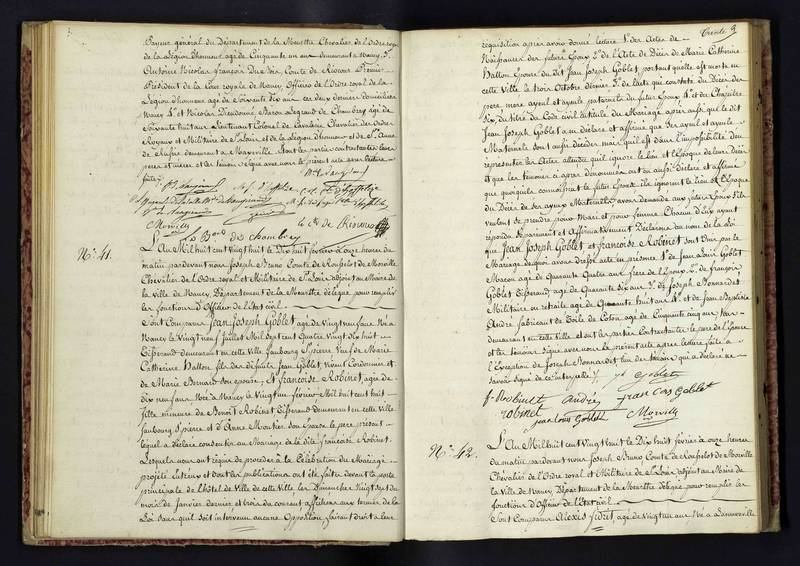 Payeur général du Département de la Meurthe Chevalier de l'Ordre royal
de la Légion d'honneur agé de Cinquante un ans demeurant à Nancy, 3°
Antoine Nicolas François Comte de Riocour Premier
Président de la Cour royale de Nancy, Officier de l'Ordre royal de la
Légion d'honneur agé de Soixante Six ans ces deux derniers domiciliés
Nancy, 4° et Nicolas Dieudonné, Baron Legrand de Chambrey agé de
Soixante huit ans Lieutenant Colonel de Cavalerie Chevalier des Ordres
Royaux et Militaire de St Louis de la Légion d'honneur et de Ste Anne
de Russie demeurant à Maxeville
pères et mères et les témoins signé avec nous le présent acte après lecture
faite
le Cte de Riocour
Le Bon de Chambrey
Morvilly
N° 41.
L'An Mil huit cent Vingt huit le Dix huit février à Onze heures du
matin pardevant nous Joseph Bruno Comte de Morville
Chevalier de l'Ordre royal et Militaire de St Louis adjoint au Maire de
la Ville de Nancy Département de la Meurthe délégué pour remplir
les fonctions d'Officier de l'Etat civil
Sont Comparus Jean Joseph Goblet agé de Vingt neuf ans Né à
Nancy le Vingt neuf Juillet Mil sept cent Quatre Vingt dix huit
Tisserand demeurant en cette Ville faubourg St Pierre Veuf de Marie
Catherine Hatton fils des défunts Jean Goblet, vivant Cordonnier et
de Marie Bernard son épouse, Et françoise Robinet agée de
Dix neuf ans Née à Nancy le Vingt un février Mil huit cent huit
fille mineure de Benoît Robinet Tisserand demeurant en cette Ville
faubourg St Pierre et d'Anne Martin son épouse le père présent
lequel a déclaré consentir au Mariage de la dite françoise Robinet
Lesquels nous ont requis de procéder à la Célébration du Mariage
projeté entr'eux et dont les publications ont été faites devant la porte
principale de l'hôtel de Ville de cette Ville les Dimanches Vingt sept du
mois de Janvier dernier et trois du courant affichées aux termes de la
Loi sans qu'il soit intervenu aucune Opposition faisant droit à leur
Trente 9
réquisition après avoir donné lecture 1° des Actes de
Naissances des futurs Epoux 2° de l'Acte de Décès de Marie Catherine
Hatton Epouse du dit Jean Joseph Goblet portant qu'elle est morte en
cette Ville le trois Octobre dernier 3° des Actes qui constatent du Décès des
père mère ayeul et ayeule paternels du futur Epoux 4° et du Chapitre
Six, du titre du Code civil intitulé du Mariage après aussi que le dit
Jean Joseph Goblet a eu déclaré et affirmé que ses ayeul et ayeule
Maternels sont aussi décédés mais qu'il est dans l'impossibilité d'en
représenter les Actes attendu qu'il ignore le lieu et l'Epoque de leurs Décès
et que les témoins ci après dénommés ont aussi déclaré et affirmé
que quoiqu'ils connoissent le futur Epoux ils ignorent le lieu et l'Epoque
du Décès de ses ayeux Maternels avons demandé aux futurs Epoux s'ils
veulent se prendre pour Mari et pour femme Chacun d'eux ayant
répondu séparément et Affirmativement Déclarons au nom de la loi
que Jean Joseph Goblet et françoise Robinet sont Unis par le
Mariage de quoi avons dressé acte en présence 1° de Jean Louis Goblet
Maçon agé de Quarante Quatre ans frère de l'Epoux 2° de françois
Goblet Tisserand agé de Quarante six ans 3° de Joseph Bonnardet
Militaire en retraite agé de Quarante huit ans 4° et de Jean Baptiste
André, fabricant de Toile de Coton agé de Cinquante cinq ans Tous
demeurant en cette Ville et ont les parties Contractantes le père de l'épouse
et les témoins signé avec nous le présent acte après lecture faite à
l'Exception de Joseph Bonnardet l'un des témoins qui a déclaré ne
savoir signé de ce interpellé
Goblet
f. Robinet andré francois goblet
robinet
jean louis goblet Morvilly
N° 42.
L'An Mil huit cent Vingt huit le Dix huit février à onze heures
du matin pardevant nous Joseph Bruno Comte de Morville
Chevalier de l'Ordre royal et Militaire de St Louis adjoint au Maire de
la Ville de Nancy Département de la Meurthe délégué pour remplir les
fonctions d'Officier de l'Etat civil
Sont Comparus Alexis agé de Vingt un ans Né à Laneuveville